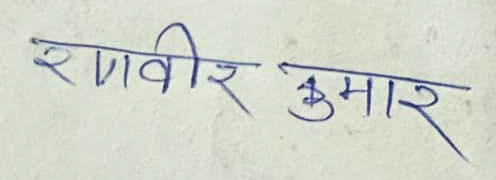 रणवीर कुमार